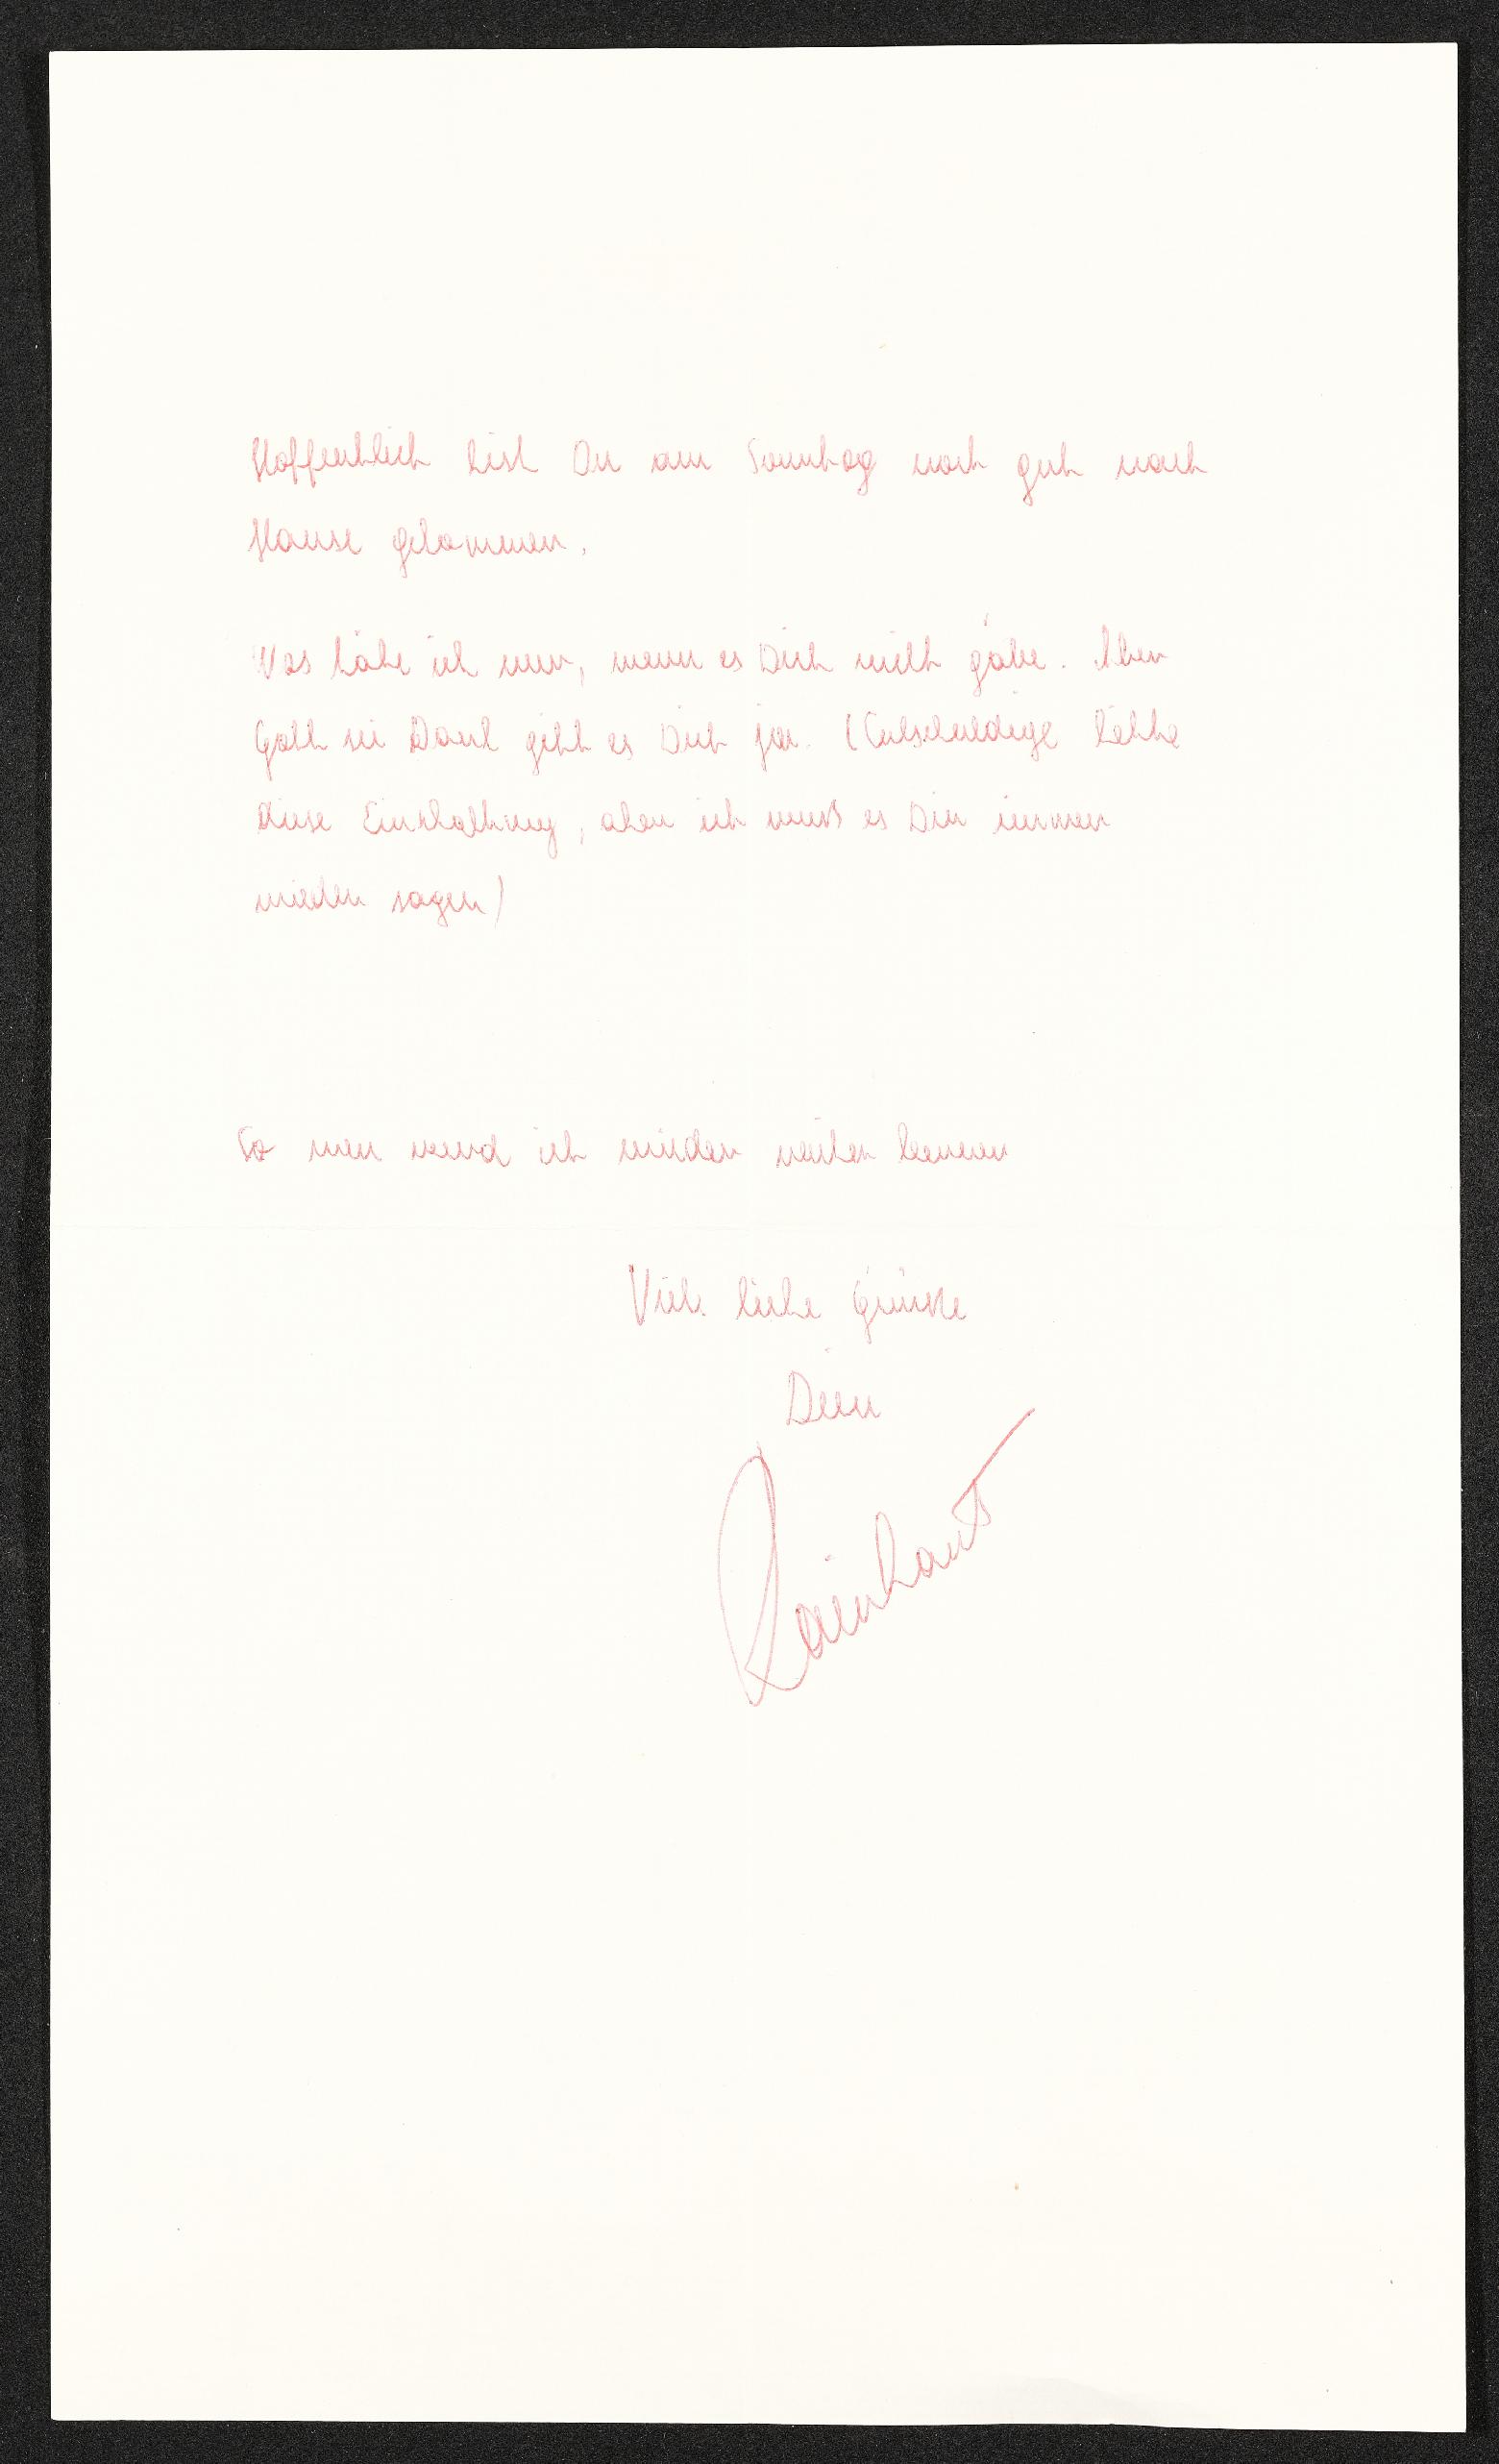 Hoffentlich bist Du am Sonntag noch gut nach
Hause gekommen.
Was täte ich nur, wenn es Dich nicht gäbe. Aber
Gott sei Dank gibt es Dich ja. (Entschuldige bitte
diese Einschaltung, aber ich muß es Dir immer
wieder sagen)
So nun werd ich wieder weiter lernen
Viele liebe Grüße
Dein
Rainhart